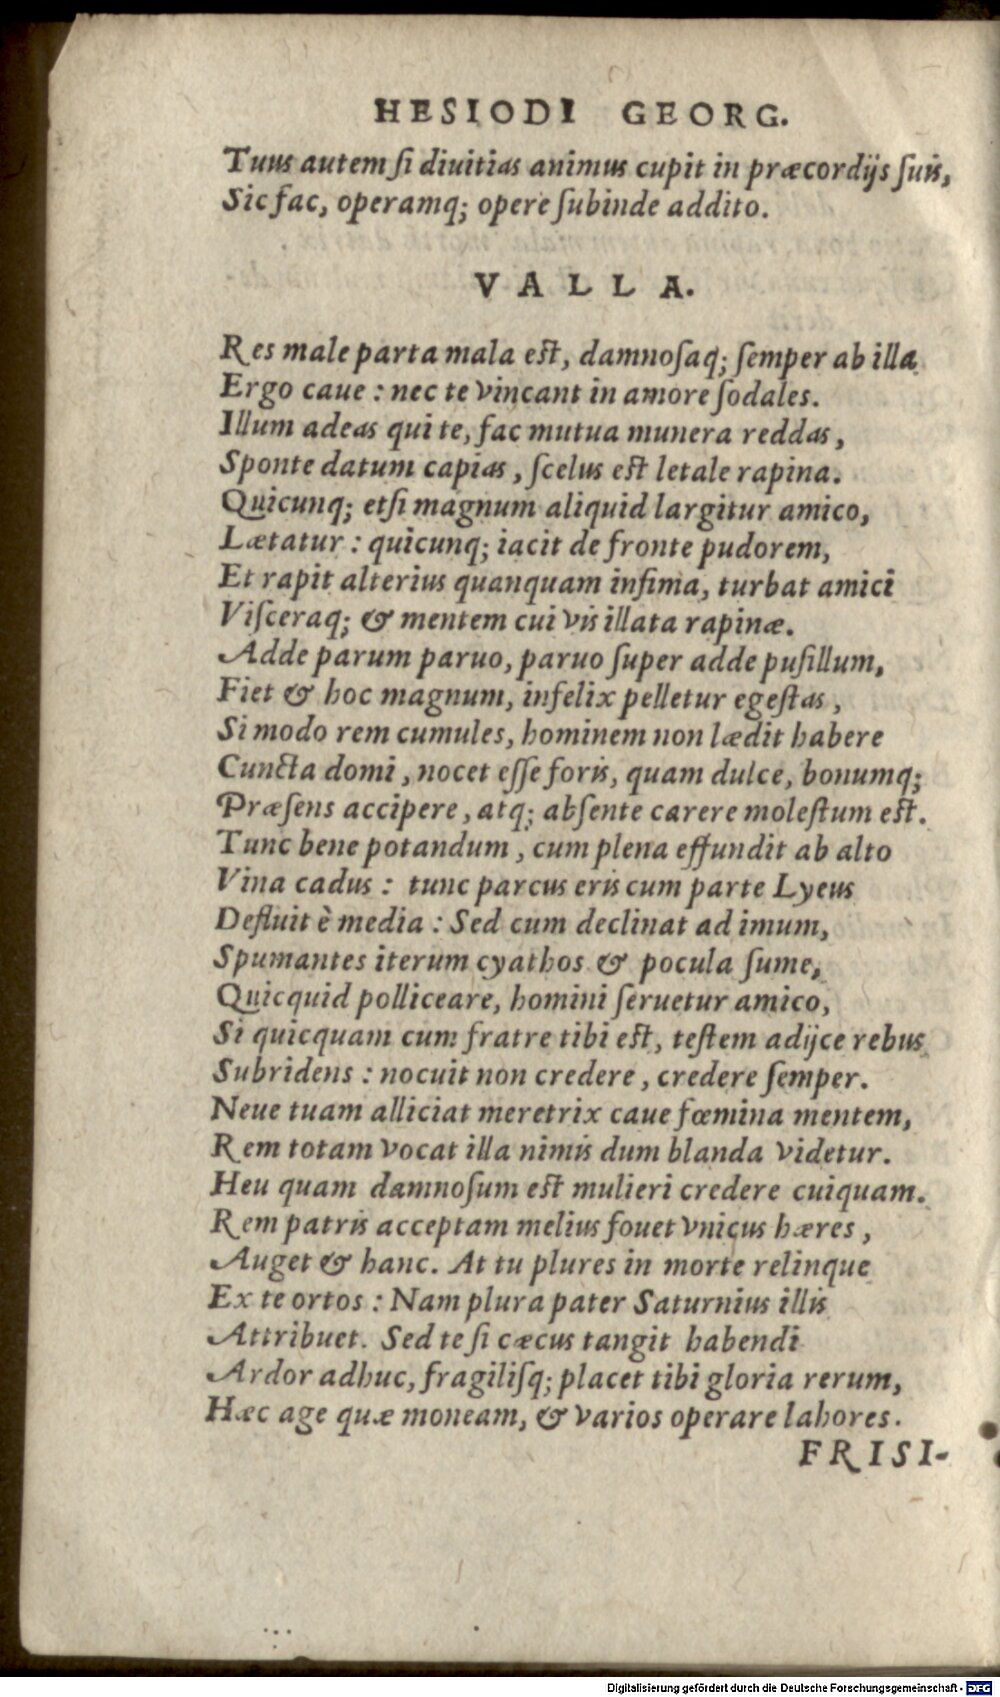 HESIODI GEORG.
Tuus autem ſi diuitias animus cupit in præcordijs ſuis,
Sic fac, operamq; opere ſubinde addito.
VALLA.
Res male parta mala eſt, damnoſaq; ſemper ab illa
Ergo caue : nec te vincant in amore ſodales.
Illum adeas qui te, fac mutua munera reddas,
Sponte datum capias, ſcelus eſt letale rapina.
Quicunq; etſi magnum aliquid largitur amico,
Lætatur : quicunq; iacit de fronte pudorem,
Et rapit alterius quanquam infima, turbat amici
Viſceraq; & mentem cui vis illata rapinæ.
Adde parum paruo, paruo ſuper adde puſillum,
Fiet & hoc magnum, infelix pelletur egeſtas,
Si modo rem cumules, hominem non lædit habere
Cuncta domi, nocet eſſe foris, quam dulce, bonumq;
Præſens accipere, atq; abſente carere moleſtum eſt.
Tunc bene potandum, cum plena effundit ab alto
Vina cadus : tunc parcus eris cum parte Lyeus
Defluit è media : Sed cum declinat ad imum,
Spumantes iterum cyathos & pocula ſume,
Quicquid polliceare, homini ſeruetur amico,
Si quicquam cum fratre tibi eſt, teſtem adijce rebus
Subridens : nocuit non credere, credere ſemper.
Neue tuam alliciat meretrix caue fœmina mentem,
Rem totam vocat illa nimis dum blanda videtur.
Heu quam damnoſum eſt mulieri credere cuiquam.
Rem patris acceptam melius fouet vnicus hæres,
Auget & hanc. At tu plures in morte relinque
Ex te ortos : Nam plura pater Saturnius illis
Attribuet. Sed te ſi cæcus tangit habendi
Ardor adhuc, fragiliſq; placet tibi gloria rerum,
Hæc age quæ moneam, & varios operare labores.
FRISI-
Digitalisierung gefördert durch die Deutsche Forschungsgemeinschaft - DFG